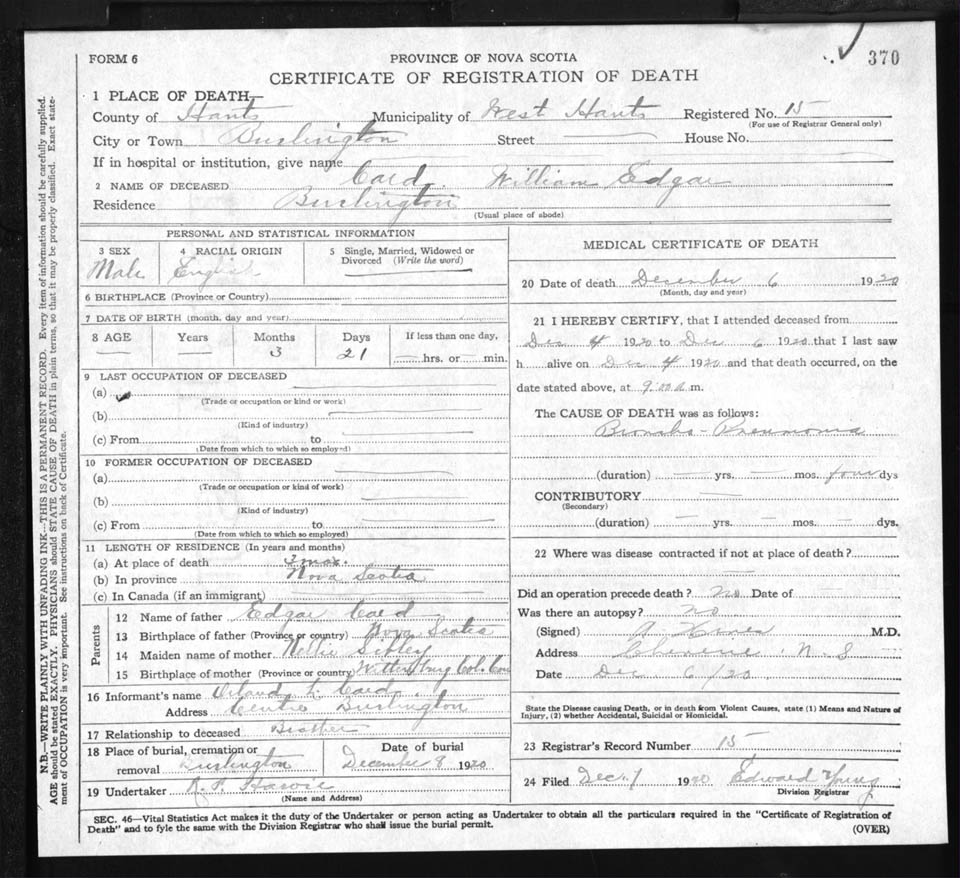 370
FORM 6
PROVINCE OF NOVA SCOTIA
CERTIFICATE OF REGISTRATION OF DEATH
1 PLACE OF DEATH—
County of Hants Municipality of West Hants Registered No. 15
(For use of Registrar General only)
City or Town Burlington Street House No.
If in hospital or institution, give name
2 NAME OF DECEASED Card, William Edgar
Residence Burlington
(Usual place of abode)
PERSONAL AND STATISTICAL INFORMATION
3 SEX 4 RACIAL ORIGIN 5 Single, Married, Widowed or Divorced (Write the word)
Male English
6 BIRTHPLACE (Province or Country)
7 DATE OF BIRTH (month, day and year)
8 AGE Years Months Days If less than one day,
3 21 hrs. or min.
9 LAST OCCUPATION OF DECEASED
(a)
(Trade or occupation or kind or work)
(b)
(Kind of industry)
(c) From to
(Date from which to which so employed)
10 FORMER OCCUPATION OF DECEASED
(a)
(Trade or occupation or kind of work)
(b)
(Kind of industry)
(c) From to
(Date from which to which so employed)
11 LENGTH OF RESIDENCE (In years and months)
(a) At place of death 3 mos.
(b) In province Nova Scotia
(c) In Canada (if an immigrant)
Parents
12 Name of father Edgar Card
13 Birthplace of father (Province or country) Nova Scotia
14 Maiden name of mother Nellie Sibley
15 Birthplace of mother (Province or country) Wittenburg Col. Cou
16 Informant's name L. Card
Address Centre Burlington
17 Relationship to deceased Brother
18 Place of burial, cremation or removal Burlington Date of burial December 8 1920
19 Undertaker
(Name and Address)
MEDICAL CERTIFICATE OF DEATH
20 Date of death December 6 1920
(Month, day and year)
21 I HEREBY CERTIFY, that I attended deceased from
Dec 4 1920 to Dec 6 1920 that I last saw
h alive on Dec 4 1920 and that death occurred, on the
date stated above, at 9:00 a m.
The CAUSE OF DEATH was as follows:
Broncho-Pneumonia
(duration) yrs. mos. four dys
CONTRIBUTORY
(Secondary)
(duration) yrs. mos. dys.
22 Where was disease contracted if not at place of death?
Did an operation precede death? No Date of
Was there an autopsy? no
(Signed) M.D.
Address N. S
Date Dec 6/20
State the Disease causing Death, or in death from Violent Causes, state (1) Means and Nature of
Injury, (2) whether Accidental, Suicidal or Homicidal.
23 Registrar's Record Number 15
24 Filed Dec. 7 1920 Edward Young
Division Registrar
SEC. 46—Vital Statistics Act makes it the duty of the Undertaker or person acting as Undertaker to obtain all the particulars required in the "Certificate of Registration of
Death" and to fyle the same with the Division Registrar who shall issue the burial permit.
(OVER)
N.B.—WRITE PLAINLY WITH UNFADING INK—THIS IS A PERMANENT RECORD. Every item of information should be carefully supplied.
AGE should be stated EXACTLY. PHYSICIANS should STATE CAUSE OF DEATH in plain terms, so that it may be properly classified. Exact state-
ment of OCCUPATION is very important. See instructions on back of Certificate.